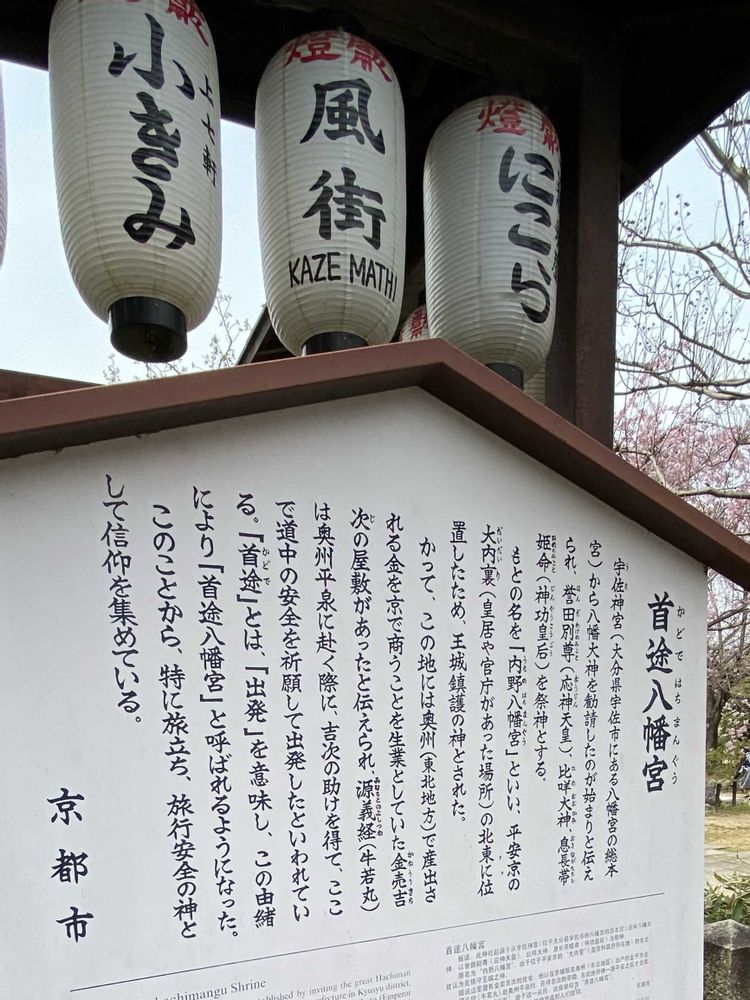 獻燈
上七軒
小きみ
獻燈
風街
KAZE MATHI
獻燈
にこら
首途八幡宮
かどではちまんぐう
宇佐神宮（大分県宇佐市にある八幡宮の総本
宮）から八幡大神を勧請したのが始まりと伝え
られ、誉田別尊（応神天皇）、比咩大神、息長帯
姫命（神功皇后）を祭神とする。
もとの名を「内野八幡宮」といい、平安京の
大内裏（皇居や官庁があった場所）の北東に位
置したため、王城鎮護の神とされた。
かつて、この地には奥州（東北地方）で産出さ
れる金を京で商うことを生業としていた金売吉
次の屋敷があったと伝えられ、源義経（牛若丸）
は奥州平泉に赴く際に、吉次の助けを得て、ここ
で道中の安全を祈願して出発したといわれてい
る。「首途」とは、「出発」を意味し、この由緒
により「首途八幡宮」と呼ばれるようになった。
このことから、特に旅立ち、旅行安全の神と
して信仰を集めている。
京都市
Kadodehachimangu Shrine
established by inviting the great Hachiman
首途八幡宮